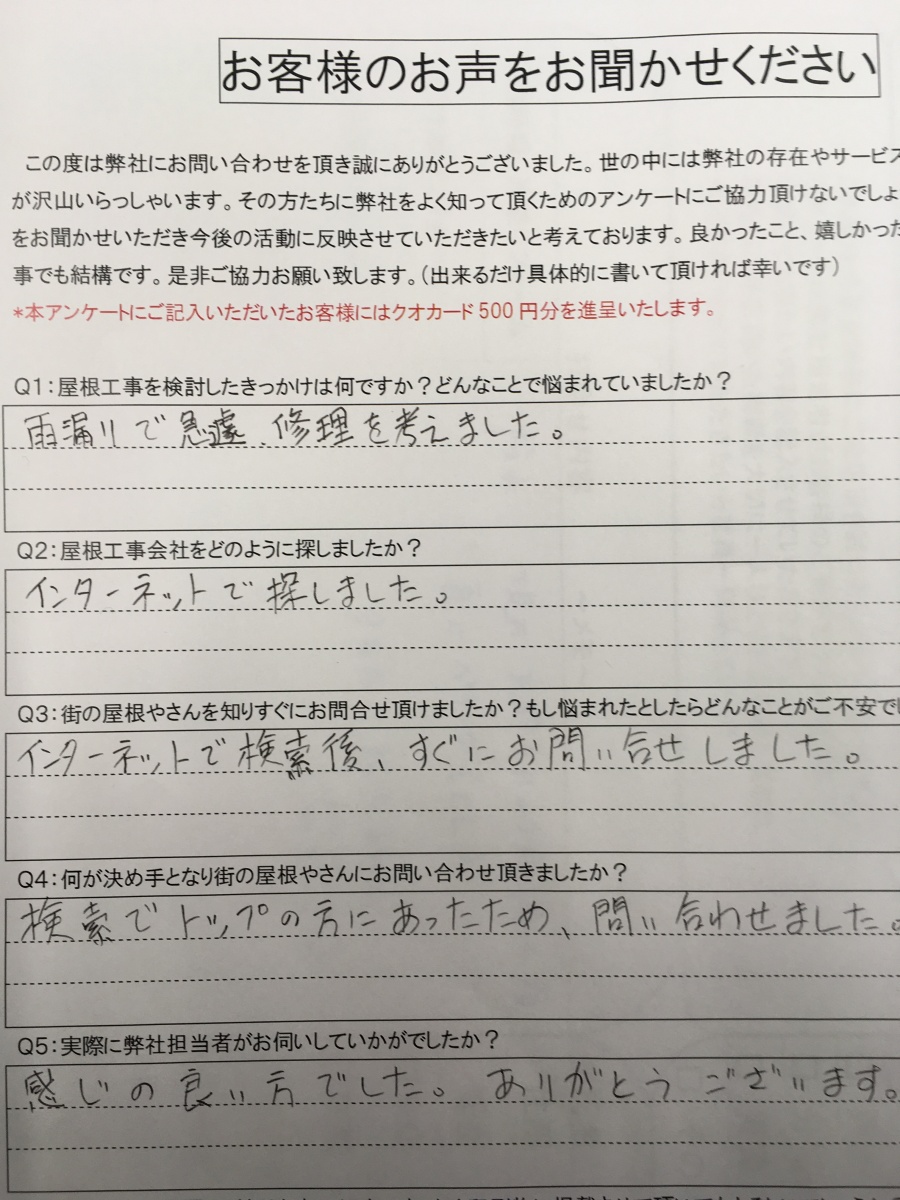 お客様のお声をお聞かせください
この度は弊社にお問い合わせを頂き誠にありがとうございました。世の中には弊社の存在やサービス
が沢山いらっしゃいます。その方たちに弊社をよく知って頂くためのアンケートにご協力頂けないでしょ
をお聞かせいただき今後の活動に反映させていただきたいと考えております。良かったこと、嬉しかった
事でも結構です。是非ご協力お願い致します。(出来るだけ具体的に書いて頂ければ幸いです)
*本アンケートにご記入いただいたお客様にはクオカード500円分を進呈いたします。
Q1:屋根工事を検討したきっかけは何ですか?どんなことで悩まれていましたか?
雨漏りで急遽、修理を考えました。
Q2:屋根工事会社をどのように探しましたか?
インターネットで探しました。
Q3:街の屋根やさんを知りすぐにお問合せ頂けましたか?もし悩まれたとしたらどんなことがご不安で
インターネットで検索後、すぐにお問い合せしました。
Q4:何が決め手となり街の屋根やさんにお問い合わせ頂きましたか?
検索でトップの方にあったため、問い合わせました。
Q5:実際に弊社担当者がお伺いしていかがでしたか?
感じの良い方でした。ありがとうございます。